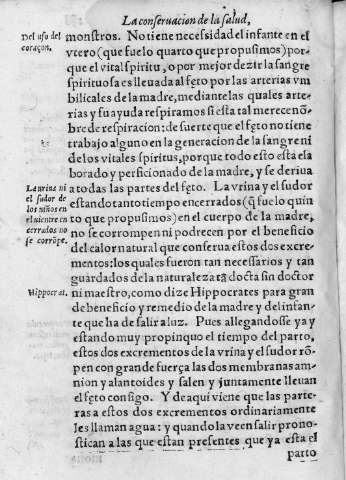 La conseruacion de la salud,
Del uso del
coraçon.
monstros. No tiene necessidad el infante en el
vtero (que fue lo quarto que propusimos) por-
que el vital spiritu, o por mejor dezir la sangre
spirituosa es lleuada al fęto por las arterias vm
bilicales de la madre, mediante las quales arte-
rias y su ayuda respiramos si esta tal merece nõ-
bre de respiracion: de suerte que el fęto no tiene
trabajo alguno en la generacion de la sangre ni
de los vitales spiritus, porque todo esto esta ela
borado y perficionado de la madre, y se deriua
a todas las partes del fęto. La vrina y el sudor
La urina ni
el sudor de
los niños en
el uientre en
cerrados no
se corrõpe.
estando tanto tiempo encerrados (q̃ fue lo quin
to que propusimos) en el cuerpo de la madre,
no se corrompen ni podrecen por el beneficio
del calor natural que conserua estos dos excre-
mentos: los quales fueron tan necessarios y tan
guardados de la naturaleza tã docta sin doctor
Hippocrat.
ni maestro, como dize Hippocrates para gran
de beneficio y remedio de la madre y del infan-
te que ha de salir a luz. Pues allegandosse ya y
estando muy propinquo el tiempo del parto,
estos dos excrementos de la vrina y el sudor rõ-
pen con grande fuerça las dos membranas am-
nion y alantoides y salen y juntamente lleuan
el fęto consigo. Y de aqui viene que las parte-
ras a estos dos excrementos ordinariamente
les llaman agua: y quando la veen salir prono-
stican a las que estan presentes que ya esta el
parto